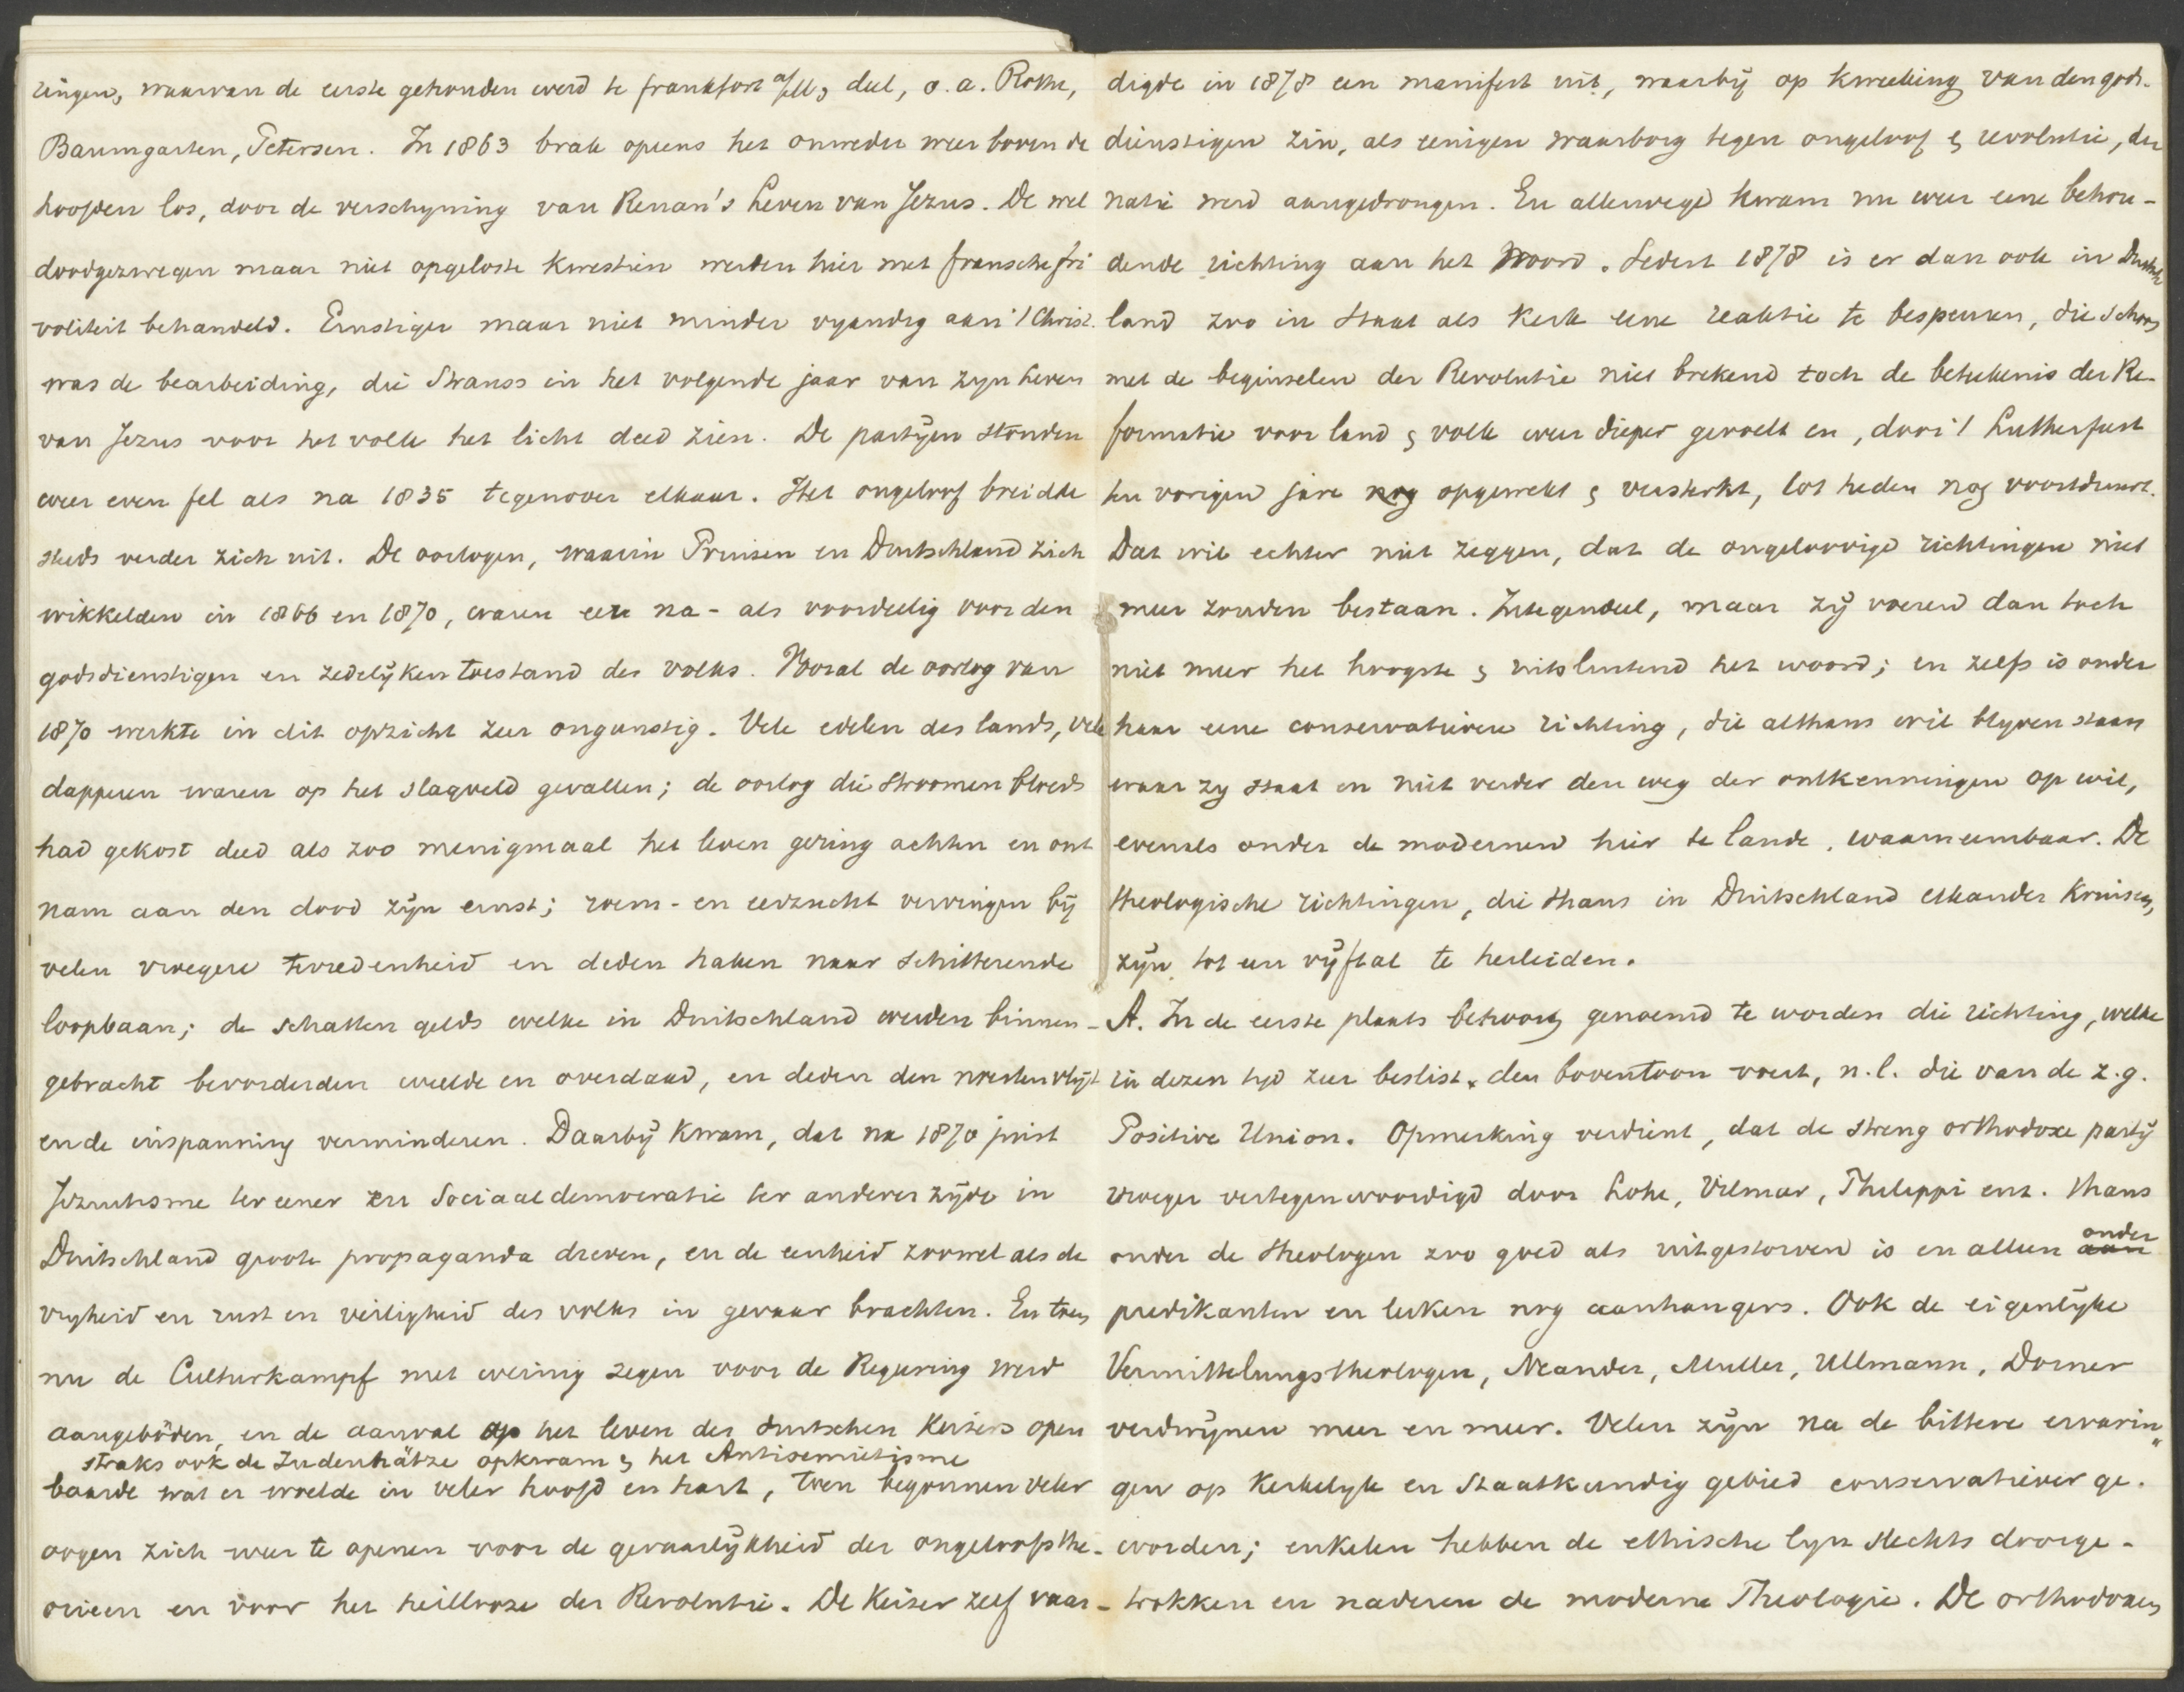 ringen, waarvan de eerste gehouden werd te frankfort a/M, deel, o.a. Rothe,
Baumgarten, Petersen. In 1863 brak opeens het onweder weer boven de
hoofden los, door de verschyning van Renan's Leven van Jezus. De wel
doodgezwegen maar niet opgeloste kwestien werden hier met fransche fri
voliteit behandeld. Ernstiger maar niet minder vyandig aan 't Christ.
was de bearbeiding, die Strauss in het volgende jaar van zyn Leven
van Jezus voor het volk het licht deed zien. De partijen stonden
weer even fel als na 1835 tegenover elkaar. Het ongeloof breidde
steeds verder zich uit. De oorlogen, waarin Pruisen en Duitschland zich
wikkelden in 1866 en 1870, waren eer na- als voordeelig voor den
godsdienstigen en zedelijken toestand des volks. Vooral de oorlog van
1870 werkte in dit opzicht zeer ongunstig. Vele edelen des lands, vele
dapperen waren op het slagveld gevallen; de oorlog die stroomen bloeds
had gekost deed als zoo menigmaal het leven gering achten en ont
nam aan den dood zijn ernst; roem- en eerzucht vervingen bij
velen vroegere tevredenheid en deden haken naar schitterende
loopbaan; de schatten gelds welke in Duitschland werden binnen-
gebracht bevorderden weelde en overdaad, en deden den noesten vlijt
en de inspanning verminderen. Daarbij kwam, dat na 1870 juist
Jezuitisme ter eener en Sociaaldemocratie ter anderer zijde in
Duitschland groote propaganda dreven, en de eenheid zoowel als de
vryheid en rust en veiligheid des volks in gevaar brachten. En toen
nu de Culturkampf met weinig zegen voor de Regeering werd
aangebonden, en de aanval op het leven des duitschen Keizers open
straks ook de Judenhätze opkwam & het Antisemietisme
baarde wat er woelde in veler hoofd en hart, toen begonnen veler
oogen zich weer te openen voor de gevaarlijkheid der ongeloofsthe-
orieen en voor het heillooze der Revolutie. De Keizer zelf vaar-
digde in 1878 een manifest uit, waarbij op kweeking van den gods-
dienstigen zin, als eenigen waarborg tegen ongeloof & revolutie, der
natie werd aangedrongen. En allerwege kwam nu weer eene behou-
dende richting aan het Woord. Sedert 1878 is er dan ook in Duitsch
land zoo in Staat als Kerk eene reaktie te bespeuren, die schoon
met de beginselen der Revolutie niet brekend toch de beteekenis der Re-
formatie voor land & volk weer dieper gevoelt en, door 't Lutherfeest
ten vorigen jare nog opgewekt & versterkt, tot heden nog voortduurt.
Dat wil echter niet zeggen, dat de ongeloovige richtingen niet
meer zouden bestaan. Integendeel, maar zij voeren dan toch
niet meer het hoogste & uitsluitend het woord; en zelfs is onder
haar eene conservatievere richting, die althans wil blyven staan
waar zy staat en niet verder den weg der ontkenningen op wil,
evenals onder de modernen hier te lande, waarneembaar. De
theologische richtingen, die thans in Duitschland elkander kruisen,
zijn tot een vijftal te herleiden.
A. In de eerste plaats behoort genoemd te worden die richting, welke
in dezen tyd zeer beslist den boventoon voert, n.l. die van de z.g.
Positive Union. Opmerking verdient, dat de streng orthodoxe partij
vroeger vertegenwoordigd door Lohe, Vilmar, Philippi enz. thans
onder de theologen zoo goed als uitgestorven is en alleen onder
predikanten en leeken nog aanhangers. Ook de eigenlijke
Vermittelungstheologen, Neander, Muller, Ullmann, Dorner
verdwijnen meer en meer. Velen zijn na de bittere ervarin"
gen op Kerkelyk en Staatkundig gebied conservatiever ge-
worden; enkelen hebben de ethische lyn slechts doorge-
trokken en naderen de moderne Theologie. De orthodoxen